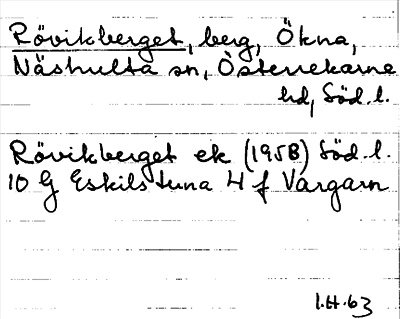 Rövikberget, berg, Ökna,
Näshulta sn, Österrekarne
hd, Söd. l.
Rövikberget ek (1958) Söd. l.
10 G Eskilstuna 4 f Vargarn
I.H.63